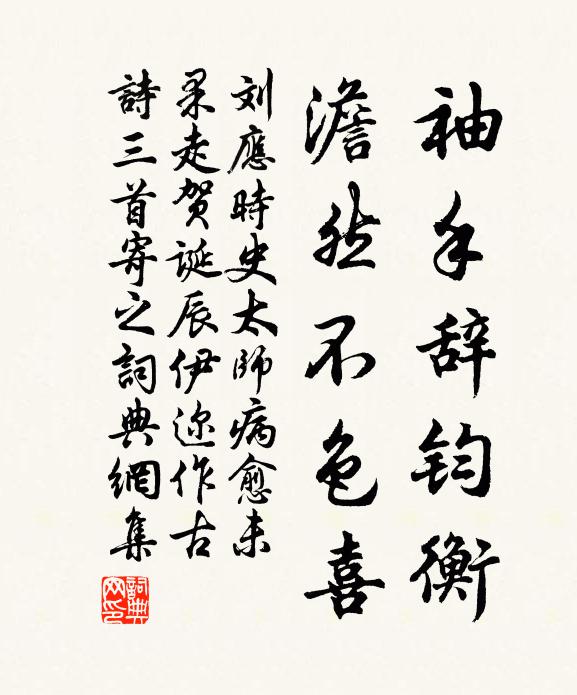 袖手辞钧衡
澹然不色喜
刘應時史太師病愈未
果走贺誕辰伊迩作古
詩三首寄之詞典網集
詞典網印